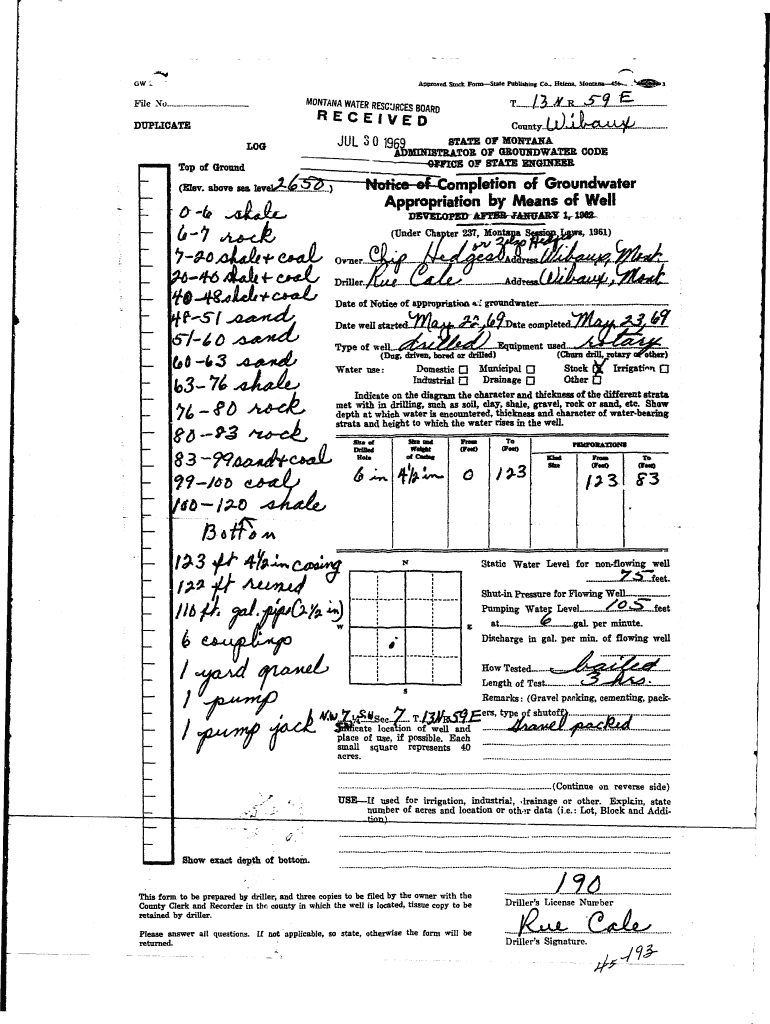 GW
Approved Stock Form—State Publishing Co., Helena, Montana
File No.
MONTANA WATER RESOURCES BOARD
T. 13 N R 59 E
RECEIVED
DUPLICATE
County Wibaux
JUL 30 1969
LOG
STATE OF MONTANA
ADMINISTRATOR OF GROUNDWATER CODE
OFFICE OF STATE ENGINEER
Top of Ground
(Elev. above sea level 2650)
Notice of Completion of Groundwater
Appropriation by Means of Well
DEVELOPED AFTER JANUARY 1, 1962
(Under Chapter 237, Montana Session Laws, 1961)
0-6 shale
6-7 rock
7-20 shale + coal
20-40 shale + coal
40-48 shale + coal
48-51 sand
51-60 sand
60-63 sand
63-76 shale
76-80 rock
80-83 rock
83-99 sand + coal
99-100 coal
100-120 shale
Bottom
123 ft 4½ in casing
122 ft reemed
110 ft. gal. pipe (2½ in)
6 couplings
1 yard gravel
1 pump
1 pump jack
Owner Chip Hedges Address Wibaux, Mont.
Driller Rue Cale Address Wibaux, Mont
Date of Notice of appropriation of groundwater
Date well started May 22, 69 Date completed May 23, 69
Type of well drilled Equipment used rotary
(Dug, driven, bored or drilled) (Churn drill, rotary or other)
Water use: Domestic Municipal Stock X Irrigation
Industrial Drainage Other
Indicate on the diagram the character and thickness of the different strata
met with in drilling, such as soil, clay, shale, gravel, rock or sand, etc. Show
depth at which water is encountered, thickness and character of water-bearing
strata and height to which the water rises in the well.
Size of Drilled Hole
Size and Weight of Casing
From (Feet)
To (Feet)
PERFORATIONS
Kind Size
From (Feet)
To (Feet)
6 in 4½ in 0 123 123 83
N
W
E
S
Static Water Level for non-flowing well
75 feet.
Shut-in Pressure for Flowing Well
Pumping Water Level 105 feet
at 6 gal. per minute.
Discharge in gal. per min. of flowing well
How Tested bailed
Length of Test 3 hrs.
Remarks: (Gravel packing, cementing, pack-
ers, type of shutoff)
Gravel packed
Sec. 7 T. 13 N R 59 E
Indicate location of well and
place of use, if possible. Each
small square represents 40
acres.
(Continue on reverse side)
USE—If used for irrigation, industrial, drainage or other. Explain, state
number of acres and location or other data (i.e.: Lot, Block and Addi-
tion)
Show exact depth of bottom.
This form to be prepared by driller, and three copies to be filed by the owner with the
County Clerk and Recorder in the county in which the well is located, tissue copy to be
retained by driller.
Please answer all questions. If not applicable, so state, otherwise the form will be
returned.
190
Driller's License Number
Rue Cale
Driller's Signature.
45-193